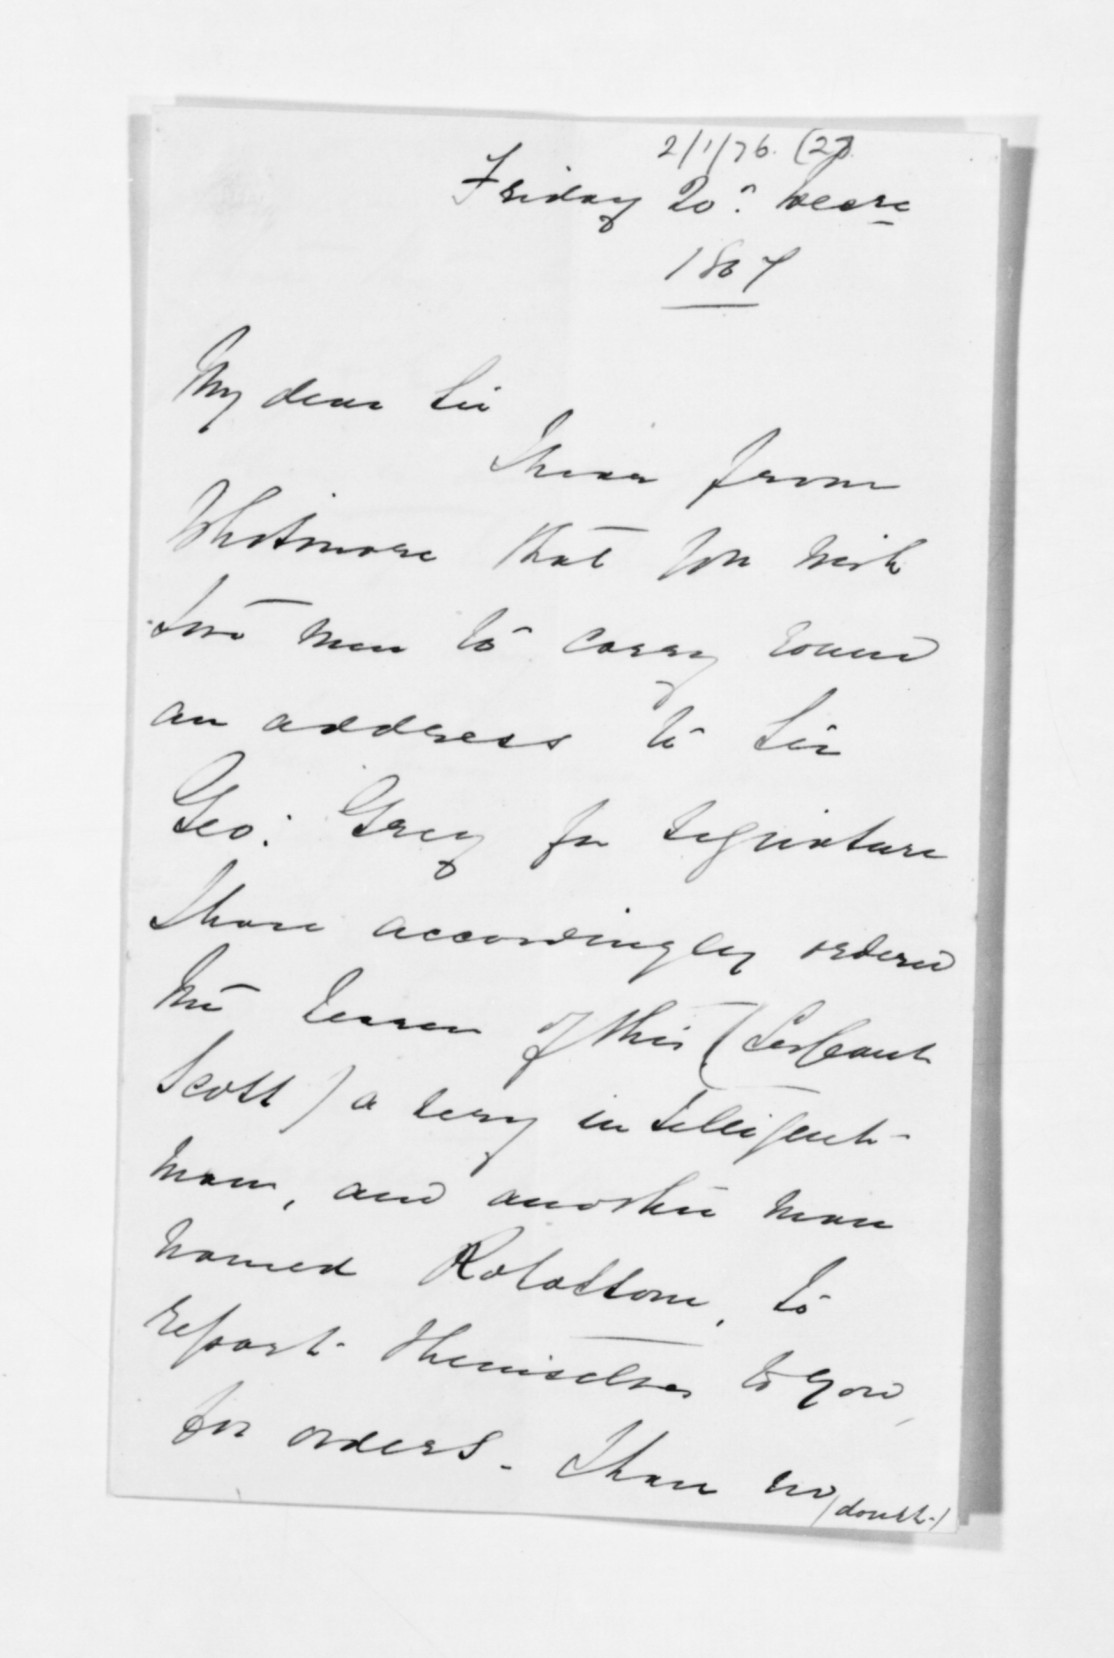 2/1/76. (27).
Friday 20th Decr
1867
My dear Sir
I hear from
Whitmore that you wish
two men to carry round
an address to Sir
Geo: Grey for signature
I have accordingly ordered
the of this (Serjeant
Scott) a very intelligent
man, and another man
named Robottom, to
report themselves to you
for orders. I have no
/doubt/